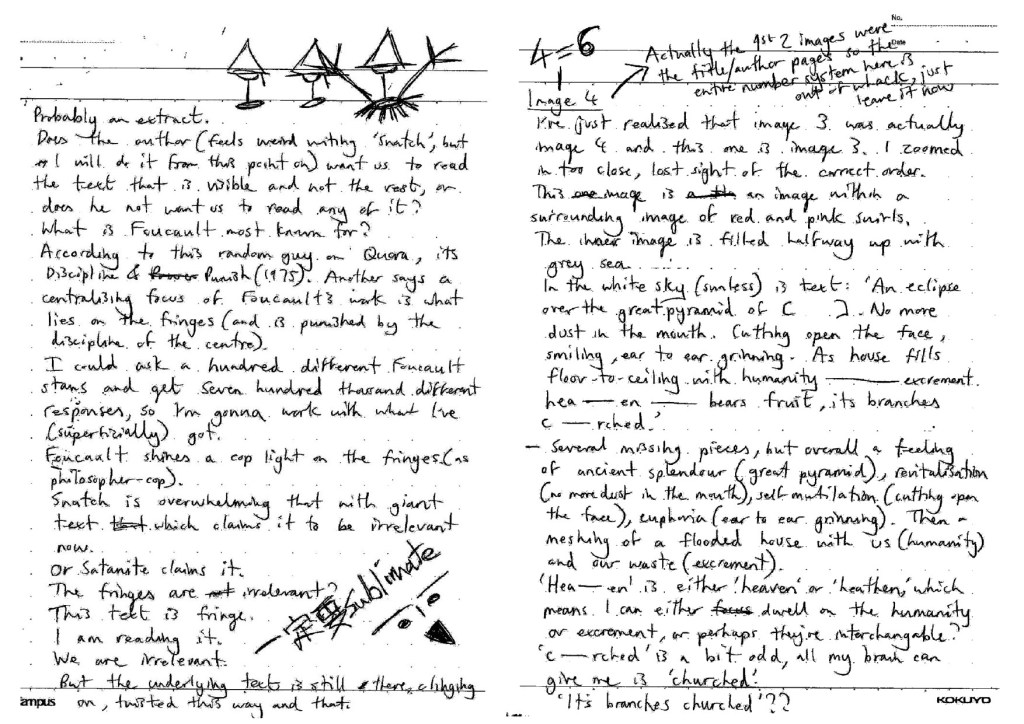 Probably an extract.
Does the author (feels weird writing 'Snatch', but
I will do it from this point on) want us to read
the text that is visible and not the rest, or
does he not want us to read any of it?
What is Foucault most known for?
According to this random guy on Quora, its
Discipline & Power Punish (1975). Another says a
centralising focus of Foucault's work is what
lies on the fringes (and is punished by the
discipline of the centre).
I could ask a hundred different Foucault
stans and get seven hundred thousand different
responses, so I'm gonna work with what I've
(superficially) got.
Foucault shines a cop light on the fringes (as
philosopher-cop).
Snatch is overwhelming that with giant
text that which claims it to be irrelevant
now.
Or Satanite claims it.
The fringes are not irrelevant?
This text is fringe.
I am reading it.
We are irrelevant.
But the underlying text is still there, clinging
on, twisted this way and that.
一定要 sublimate
ampus
No.
Date
4=6
Actually the 1st 2 images were
the title/author pages so the
entire number system here is
out of whack, just
leave it now
Image 4
I've just realised that image 3 was actually
image 4 and this one is image 3. I zoomed
in too close, lost sight of the correct order.
This one image is an image within a
surrounding image of red and pink swirls.
The inner image is filled halfway up with
grey sea ......
In the white sky (sunless) is text: 'An eclipse
over the great pyramid of C ]. No more
dust in the mouth. Cutting open the face,
smiling, ear to ear grinning. As house fills
floor-to-ceiling with humanity —— excrement.
hea — en —— bears fruit, its branches
c — rched.'
– Several missing pieces, but overall a feeling
of ancient splendour (great pyramid), revitalisation
(no more dust in the mouth), self mutilation (cutting open
the face), euphoria (ear to ear grinning). Then a
meshing of a flooded house with us (humanity)
and our waste (excrement).
'Hea — en' is either 'heaven' or 'heathen', which
means I can either focus dwell on the humanity
or excrement, or perhaps they're interchangable?
'c — rched' is a bit odd, all my brain can
give me is 'churched'.
'Its branches churched'??
KOKUYO